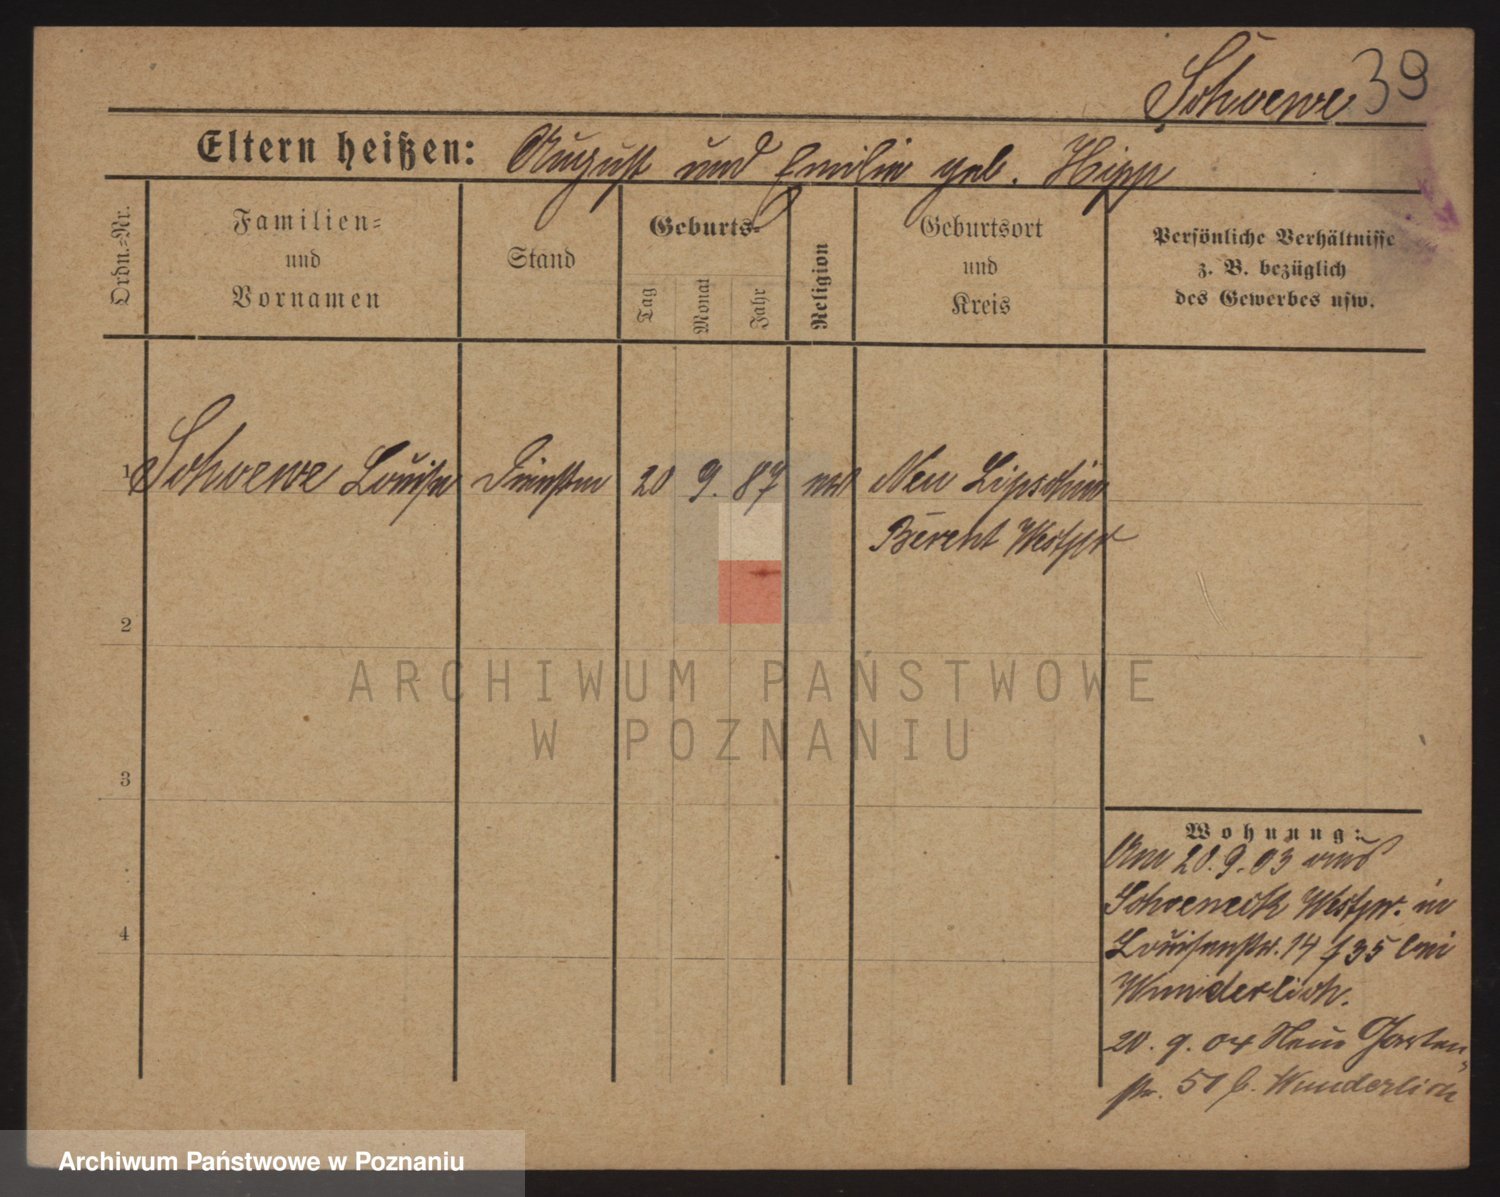 Schwewe 39
Eltern heißen: August und Emilie geb. Hipp
Ordn.=Nr.
Familien=
und
Vornamen
Stand
Geburts=
Tag
Monat
Jahr
Religion
Geburtsort
und
Kreis
Persönliche Verhältnisse
z. B. bezüglich
des Gewerbes usw.
1 Schwewe Louise 20 9. 87 Neu Lipschin
Berent Westpr
2
3
4
Wohnung:
Am 20.9.03 aus
Schoeneck Westpr. in
Louisenstr. 14 bei
Wunderlich.
20. 9. 04 Neue Garten
str. 51 b. Wunderlich
ARCHIWUM PAŃSTWOWE
W POZNANIU
Archiwum Państwowe w Poznaniu